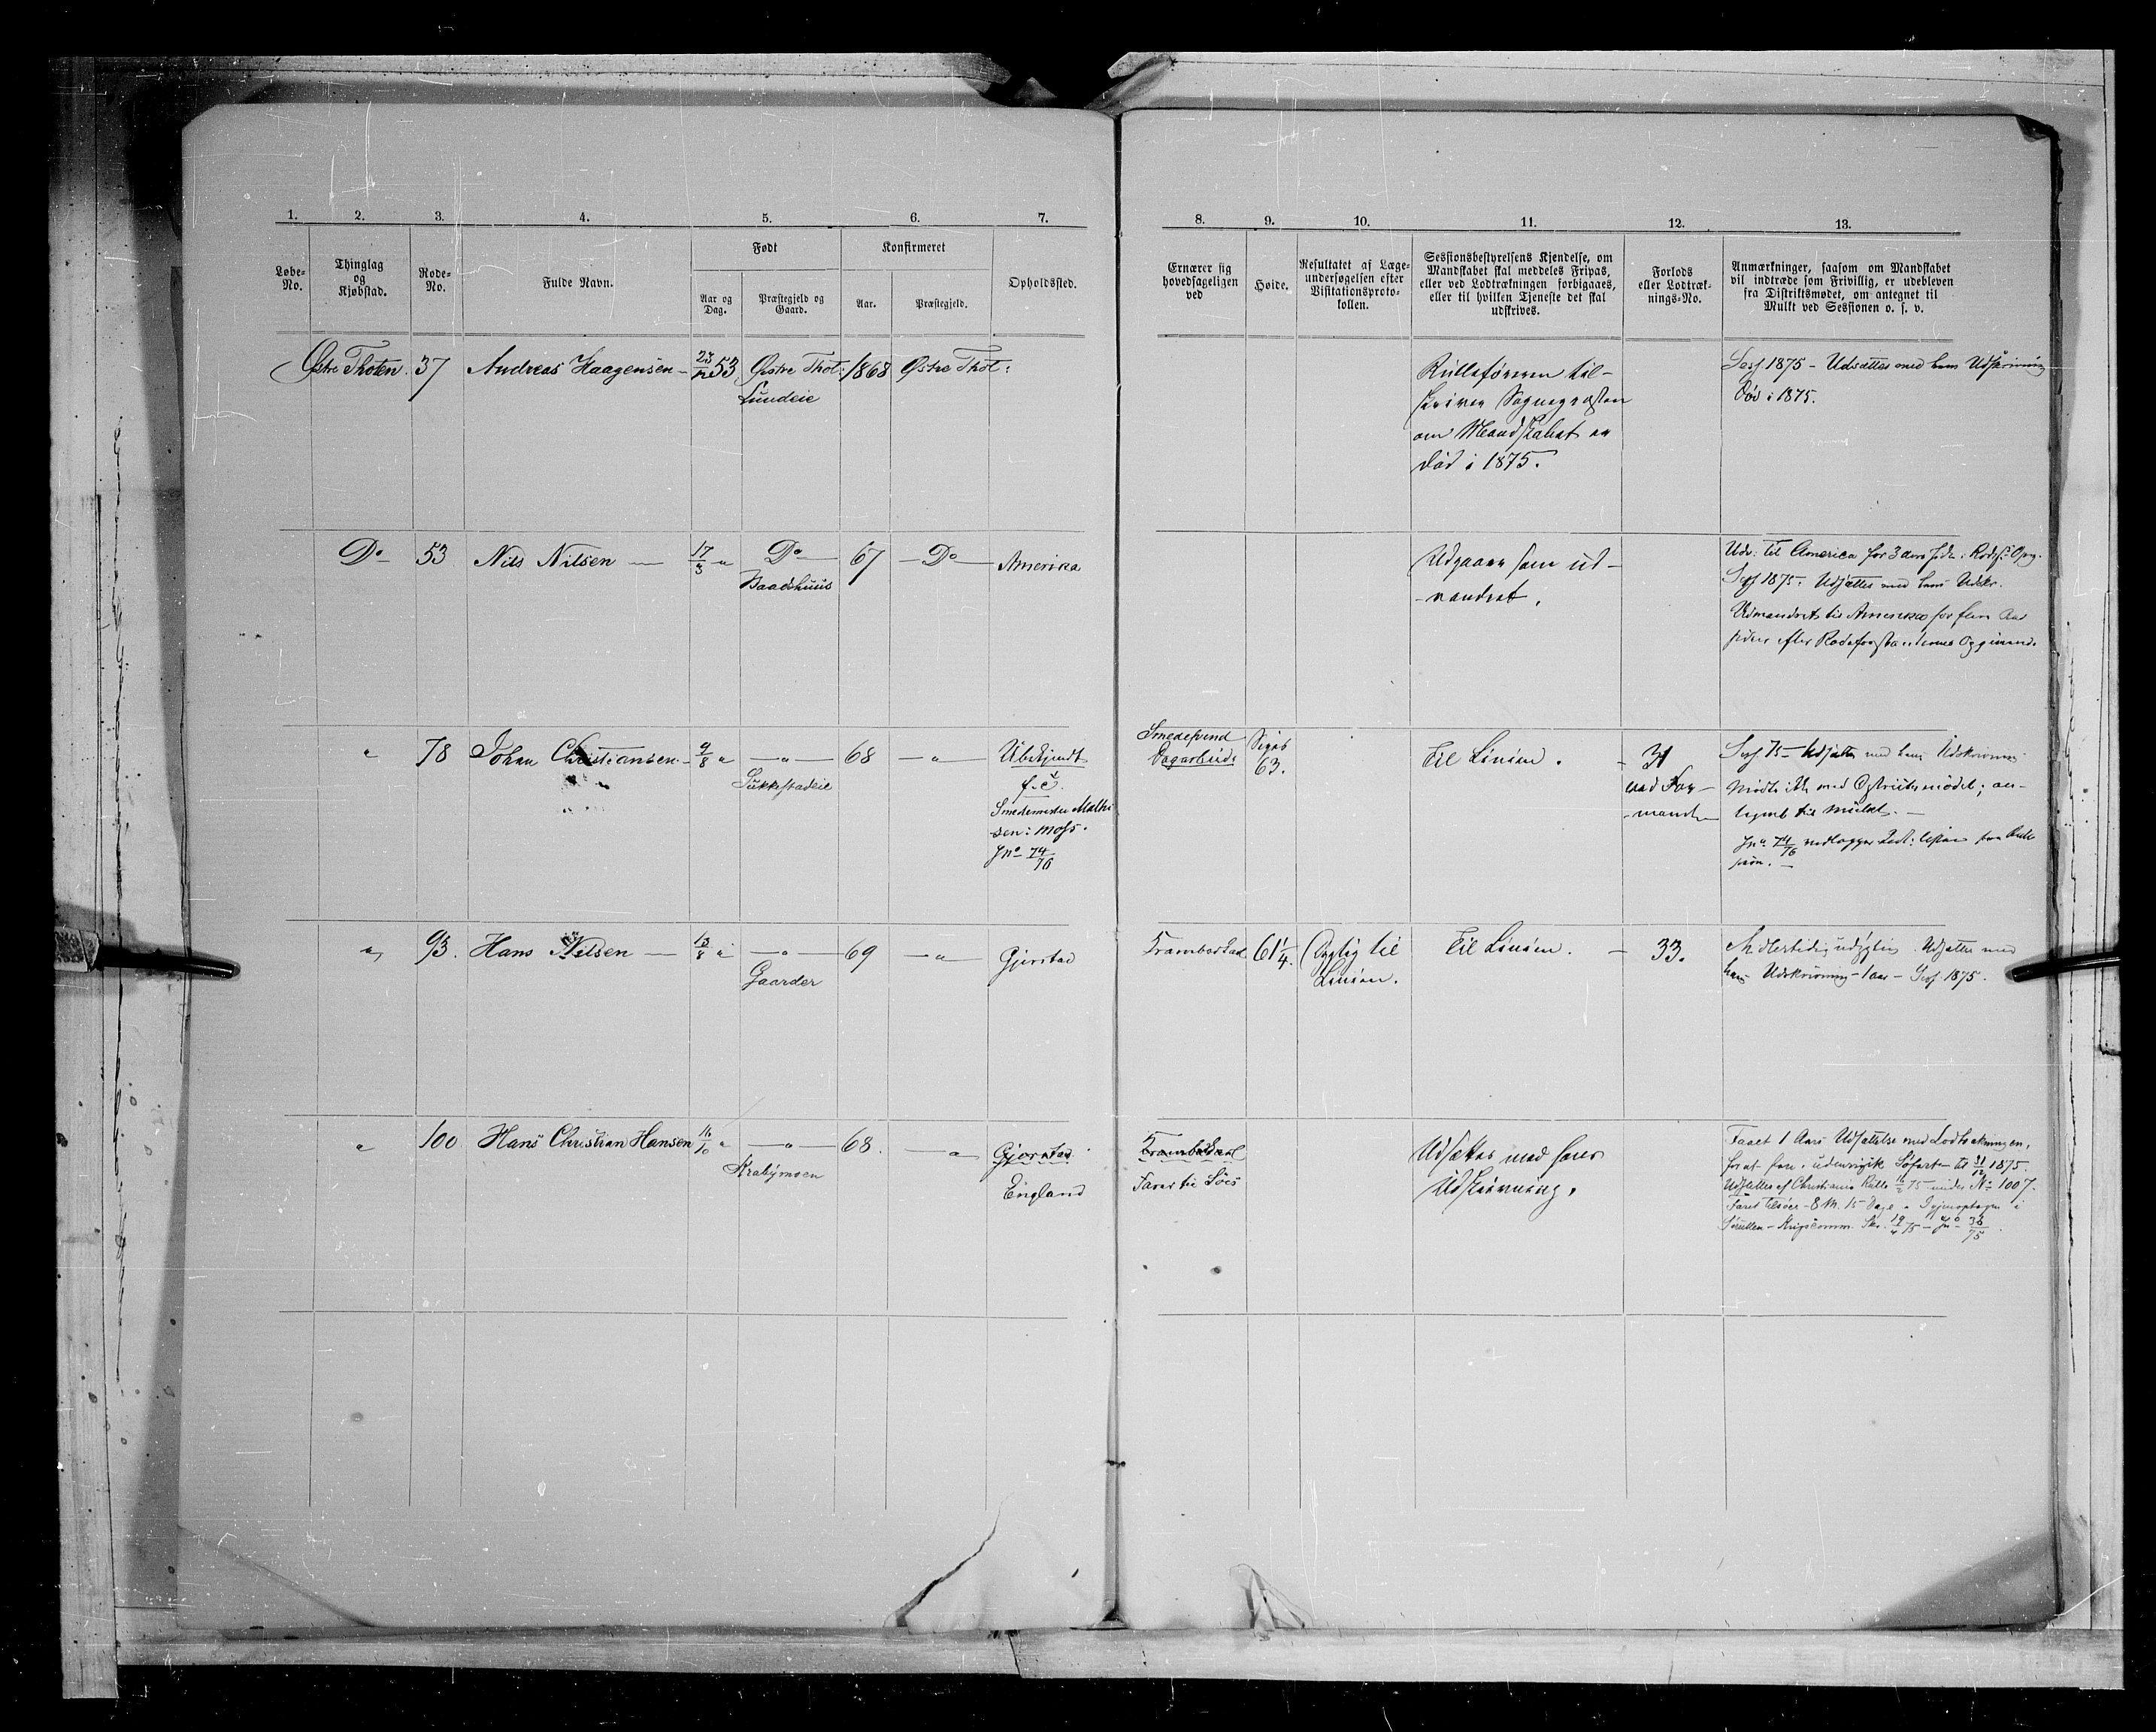 1. 2. 3. 4. 5. 6. 7.
Løbe-No.
Thinglag og Kjøbstad.
Rode-No.
Fulde Navn.
Født
Aar og Dag.
Præstegjeld og Gaard.
Konfirmeret
Aar.
Præstegjeld.
Opholdssted.
8. 9. 10. 11. 12. 13.
Ernærer sig hovedsageligen ved
Høide.
Resultatet af Læge-undersøgelsen efter Visitationsproto-kollen.
Sessionsbestyrelsens Kjendelse, om Mandskabet skal meddeles Fripas, eller ved Lodtrækningen forbigaaes, eller til hvilken Tjeneste det skal udskrives.
Forlods eller Lodtræk-nings-No.
Anmærkninger, saasom om Mandskabet vil indtræde som Frivillig, er udebleven fra Distriktsmødet, om antegnet til Mulkt ved Sessionen o. s. v.
Østre Thoten. 37 Andreas Haagensen 53 Østre Thot: 1868 Østre Thot:
Lundeie
Rulleføreren til-
skriver
om Mandskabet er
død i 1875.
Sess. 1875 - Udsættes med hans Udskrivning
Død i 1875.
Do 53 Nils Nilsen 17/3 " Do 67 Do Amerika
Baadshuus
Udgaaer som ud-
-vandret.
Udv: til America for 3 aar siden
Sess 1875. Udsættes med hans Udskr.
Udvandret til Amerika for fem Aar
siden efter Rodeforstanderens Opgivende
" 78 Johan Christiansen 9/8 " " 68 " Ubekjendt
Sukkestadeie
f. t.
Smedemester Mathi-
sen i Moss.
Jno 74/76
Smedesvend
Dagarbeide
63.
Til Linien.
31
ved For-
-mand
Sess. 75 - Udsættes med hans Udskrivning
Mødte ikke med Distriktsmødet; an-
tegnet til Mulkt.
Jno 74/76 vedlægger
" 93. Hans Nilsen 13/8 " " 69 " Gjerstad
Gaarder
61 1/4.
Dygtig til
Linien.
Til Linien.
33.
Midlertidig udygtig. Udsættes med
hans Udskrivning - 1 aar - Sess. 1875.
" 100 Hans Christian Hansen 16/10 " " 68. " Gjerstad
Krabymoen
England
Farer til Søes
Udsættes med hans
Udskrivning.
Faaet 1 Aars Udsættelse med Lodtrækningen,
for at fare i udenrigsk Søfart til 31/12 1875.
Udslettes af Christiania Rulle 16/2 75 under No 1007.
Faret tilsøes - 8 M. 15 Dage
Sørullen - Krigscomm. Skr. 19/4 75 - Jno 38/75.